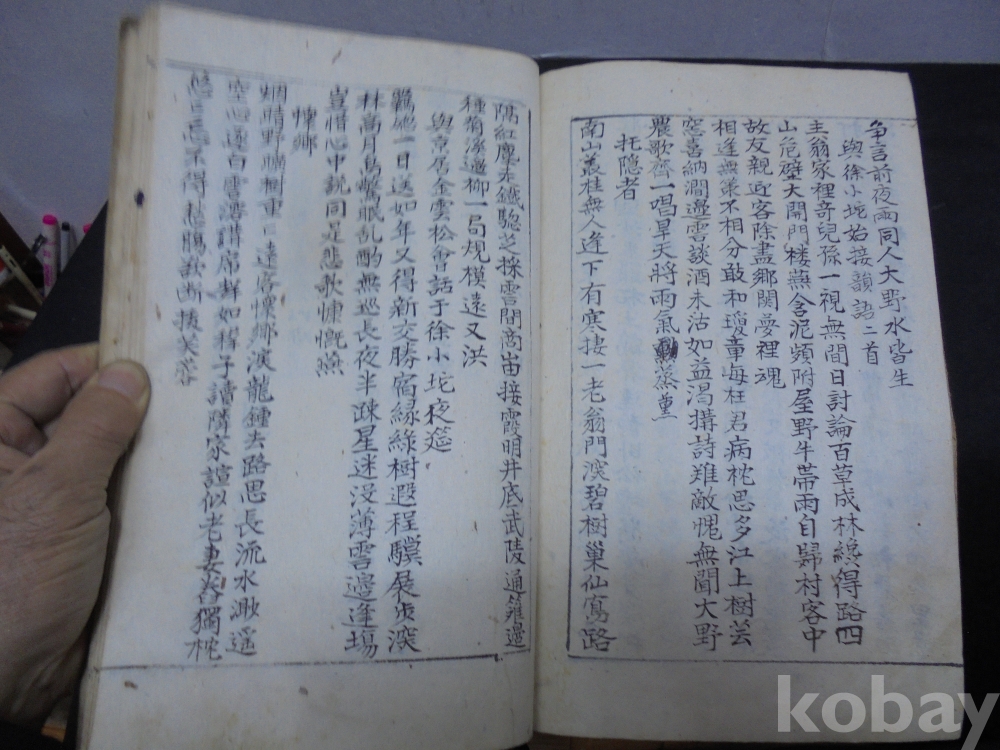 争言前夜雨同人大野水皆生
與徐小坨始接韻語二首
主翁家裡奇兒孫一視無間日討論百草成林纔得路四
山危壁大開門楼燕含泥頻附屋野牛帶雨自歸村客中
故友親近客除盡鄉関夢裡魂
相逢無策不相分敢和瓊童每枉君病枕思多江上樹芸
窓喜納澗邊雲談酒未沽如益渴搆詩難敵愧無聞大野
農歌齊一唱旱天將雨氣蒸薰
托隐者
南山叢桂無人逢下有寒棲一老翁門深碧樹巢仙窩路
隔紅塵去鐵驄芝採雲閒商宙接霞明井底武陵通籬邊
種菊溪邊柳一局規模遠又洪
與京居金雲松會話于徐小坨夜筵
羈旅一日送如年又得新交勝宿緣綠樹遐程驥展步深
林高月鳥驚眠乱酌無巡長夜半疎星迷没薄雲邊逢場
豈惜心中銳同是悲歌慷慨燕
懷鄉
烟晴野曠樹重〻遠客懷鄉淚龍鍾去路思長流水遙
空心逐白雲濃講席喜如稚子讀隣家諠似老妻舂獨枕
悠〻忘不得悲腸欲断拔芙蓉
kobay